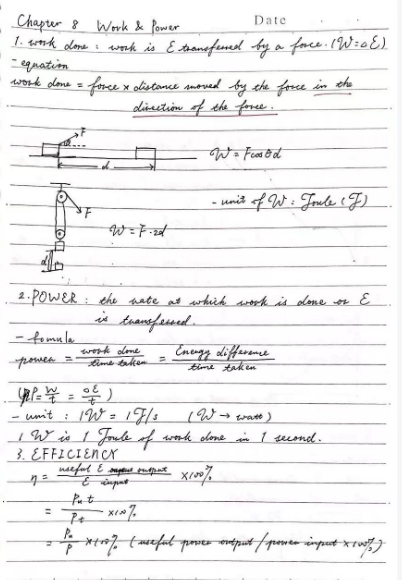 Chapter 8 Work & Power
Date
1. work done : work is E transferred by a force. (W=ΔE)
- equation
work done = force x distance moved by the force in the
direction of the force.
F
θ
d
W = Fcosθd
- unit of W : Joule (J)
F
W = F·2d
d
2. POWER : the rate at which work is done or E
is transferred.
- fomula
power = work done / time taken = Energy difference / time taken
(P = W/t = ΔE/t)
- unit : 1W = 1J/s (W → watt)
1 W is 1 Joule of work done in 1 second.
3. EFFICIENCY
η = useful E output / E input x100%
= Pu t / Pt x100%
= Pu / P x100% (useful power output / power input x 100%)